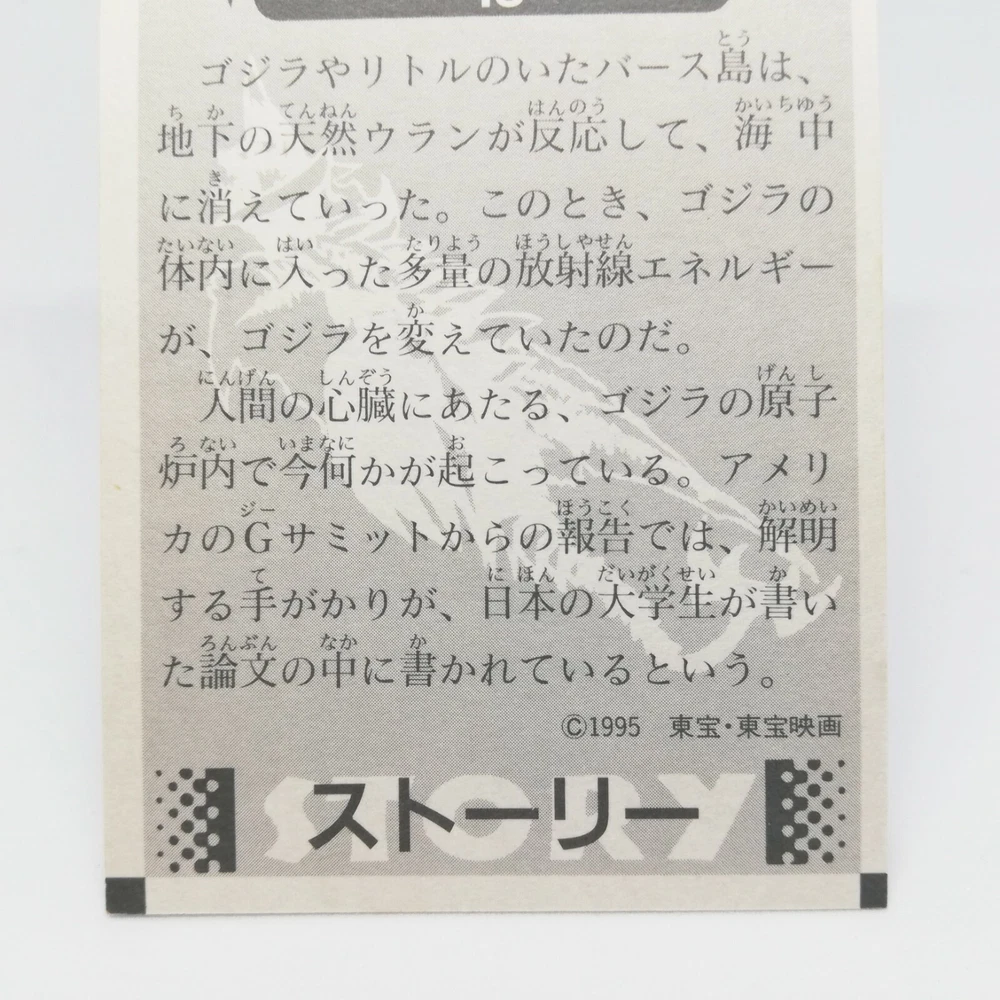 ゴジラやリトルのいたバース島は、
地下の天然ウランが反応して、海中
に消えていった。このとき、ゴジラの
体内に入った多量の放射線エネルギー
が、ゴジラを変えていたのだ。
人間の心臓にあたる、ゴジラの原子
炉内で今何かが起こっている。アメリ
カのGサミットからの報告では、解明
する手がかりが、日本の大学生が書い
た論文の中に書かれているという。
©1995 東宝・東宝映画
STORY
ストーリー